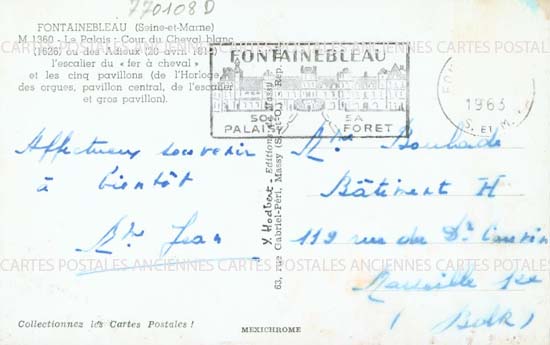 770108D
FONTAINEBLEAU (Seine-et-Marne)
M 1360 - Le Palais : Cour du Cheval blanc
(1626) ou des Adieux (20 avril 1814)
l'escalier du « fer à cheval »
et les cinq pavillons (de l'Horloge,
des orgues, pavillon central, de l'escalier
et gros pavillon).
FONTAINEBLEAU
SON PALAIS
SA FORET
1963
S. ET M.
Affectueux souvenir
à bientôt
Mme Jean
Y. Hodbert - Editions de Massy
63, rue Gabriel-Péri, Massy (S.-et-O.) Rep.
Mme
Bâtiment H
119 rue du Dr
Marseille
CARTES POSTALES ANCIENNES CARTES POSTALES ANCIENNES
Collectionnez les Cartes Postales !
MEXICHROME